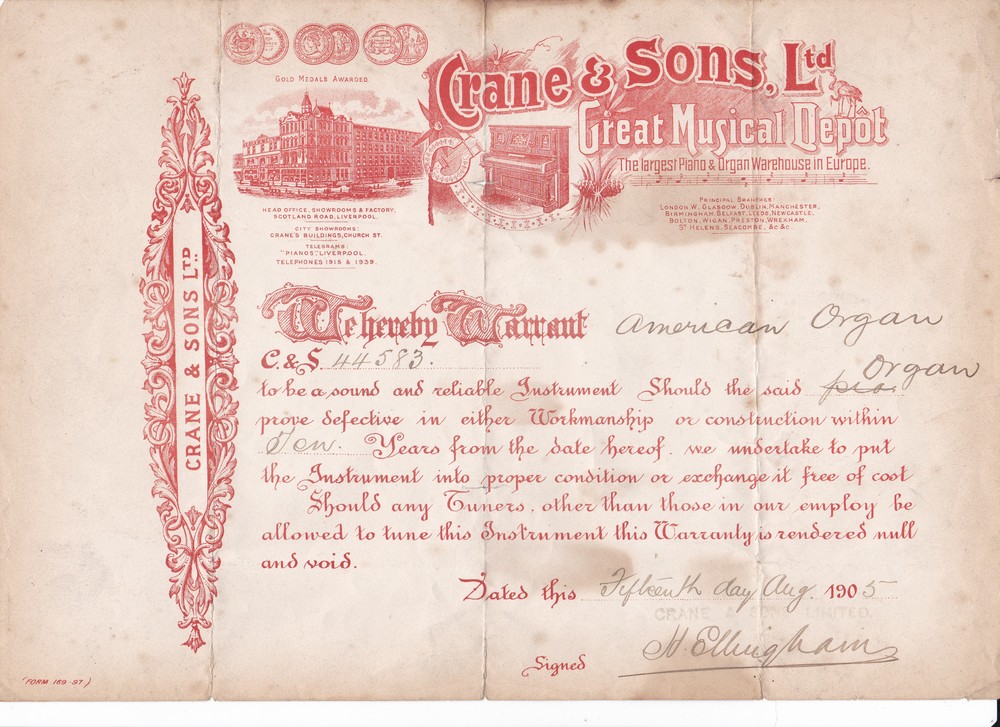 GOLD MEDALS AWARDED
Crane & Sons, Ltd
Great Musical Depôt
The largest Piano & Organ Warehouse in Europe.
PRINCIPAL BRANCHES:
LONDON W. GLASGOW. DUBLIN, MANCHESTER,
BIRMINGHAM, BELFAST, LEEDS, NEWCASTLE,
BOLTON, WIGAN, PRESTON, WREXHAM,
ST HELENS, SEACOMBE, &c &c.
HEAD OFFICE, SHOWROOMS & FACTORY,
SCOTLAND ROAD, LIVERPOOL.
CITY SHOWROOMS:
CRANE'S BUILDINGS, CHURCH ST.
TELEGRAMS:
"PIANOS", LIVERPOOL.
TELEPHONES 1915 & 1939.
CRANE & SONS LTD
We hereby Warrant American Organ
C. & S. 44583.
Organ
to be a sound and reliable Instrument Should the said pia
prove defective in either Workmanship or construction within
Ten. Years from the date hereof. we undertake to put
the Instrument into proper condition or exchange it free of cost
Should any Tuners, other than those in our employ be
allowed to tune this Instrument this Warranty is rendered null
and void.
Dated this Fifteenth day Aug. 1905
CRANE & SONS LIMITED.
Signed H. Ellingham
(FORM 169-97.)